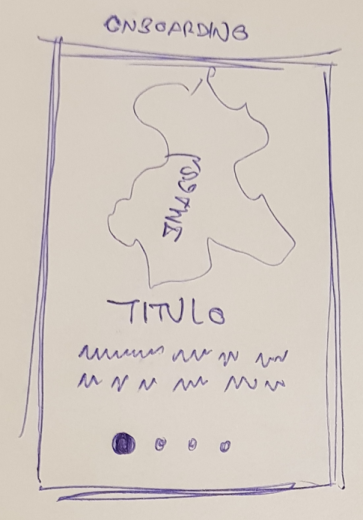 ONBOARDING
IMAGEN
TITULO